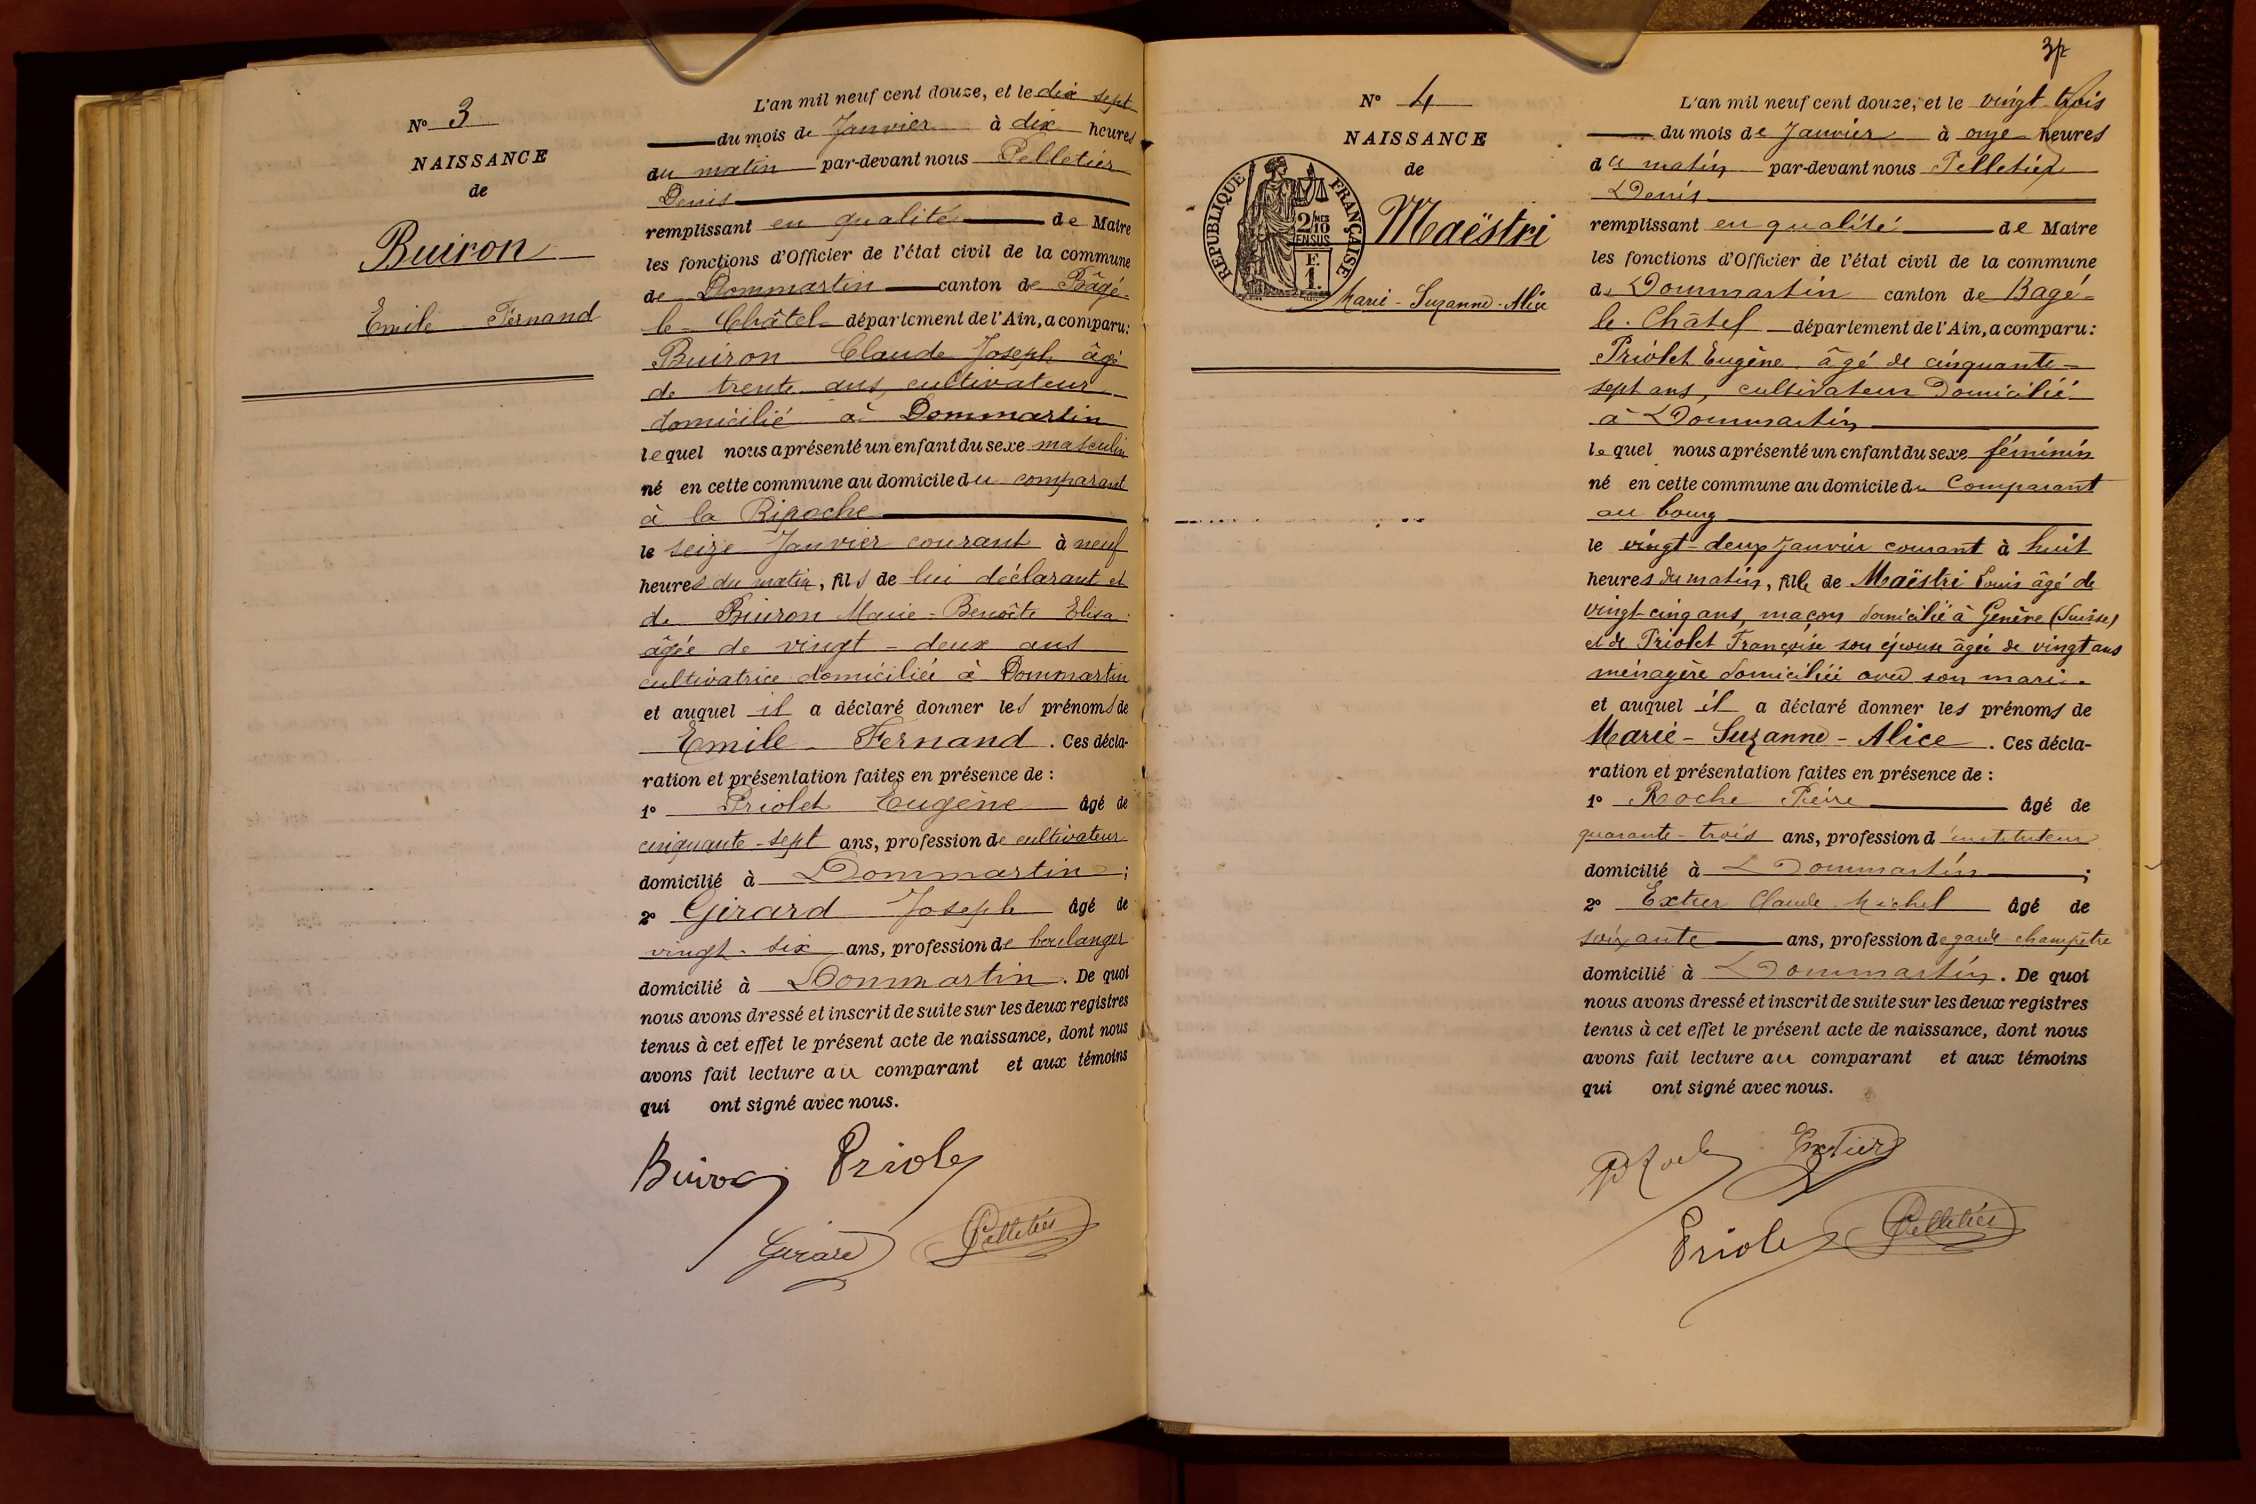 N° 3
NAISSANCE
de
Buiron
Emile Fernand
L'an mil neuf cent douze, et le dix sept
du mois de Janvier à dix heures
du matin par-devant nous Pelletier
Denis
remplissant en qualité de Maire
les fonctions d'Officier de l'état civil de la commune
de Dommartin canton de Bâgé-
le-Châtel département de l'Ain, a comparu:
Buiron Claude Joseph âgé
de trente ans, cultivateur
domicilié à Dommartin
lequel nous a présenté un enfant du sexe masculin
né en cette commune au domicile du comparant
à la Ripoche
le seize Janvier courant à neuf
heures du matin, fils de lui déclarant et
de Buiron Marie-Benoîte Elisa
âgée de vingt-deux ans
cultivatrice domiciliée à Dommartin
et auquel il a déclaré donner les prénoms de
Emile - Fernand. Ces décla-
ration et présentation faites en présence de:
1° Priolet Eugène âgé de
cinquante-sept ans, profession de cultivateur
domicilié à Dommartin;
2° Girard Joseph âgé de
vingt-six ans, profession de boulanger
domicilié à Dommartin. De quoi
nous avons dressé et inscrit de suite sur les deux registres
tenus à cet effet le présent acte de naissance, dont nous
avons fait lecture au comparant et aux témoins
qui ont signé avec nous.
Buiron Priolet
Girard Pelletier
N° 4
NAISSANCE
de
RÉPUBLIQUE FRANÇAISE
2/10 MES
EN SUS
F.
1.
Maëstri
Marie-Suzanne-Alice
L'an mil neuf cent douze, et le vingt-trois
du mois de Janvier à onze heures
du matin par-devant nous Pelletier
Denis
remplissant en qualité de Maire
les fonctions d'Officier de l'état civil de la commune
de Dommartin canton de Bagé-
le-Châtel département de l'Ain, a comparu:
Priolet Eugène âgé de cinquante-
sept ans, cultivateur Domicilié
à Dommartin
lequel nous a présenté un enfant du sexe féminin
né en cette commune au domicile du Comparant
au bourg
le vingt-deux Janvier courant à huit
heures du matin, fille de Maëstri Louis âgé de
vingt-cinq ans, maçon domicilié à Genève (Suisse)
et de Priolet Françoise son épouse âgée de vingt ans
ménagère domiciliée avec son mari.
et auquel il a déclaré donner les prénoms de
Marie-Suzanne-Alice. Ces décla-
ration et présentation faites en présence de:
1° Roche Pierre âgé de
quarante-trois ans, profession d'instituteur
domicilié à Dommartin;
2° Extier Claude Michel âgé de
soixante ans, profession de garde champêtre
domicilié à Dommartin. De quoi
nous avons dressé et inscrit de suite sur les deux registres
tenus à cet effet le présent acte de naissance, dont nous
avons fait lecture au comparant et aux témoins
qui ont signé avec nous.
P Roche Extier
Priolet Pelletier